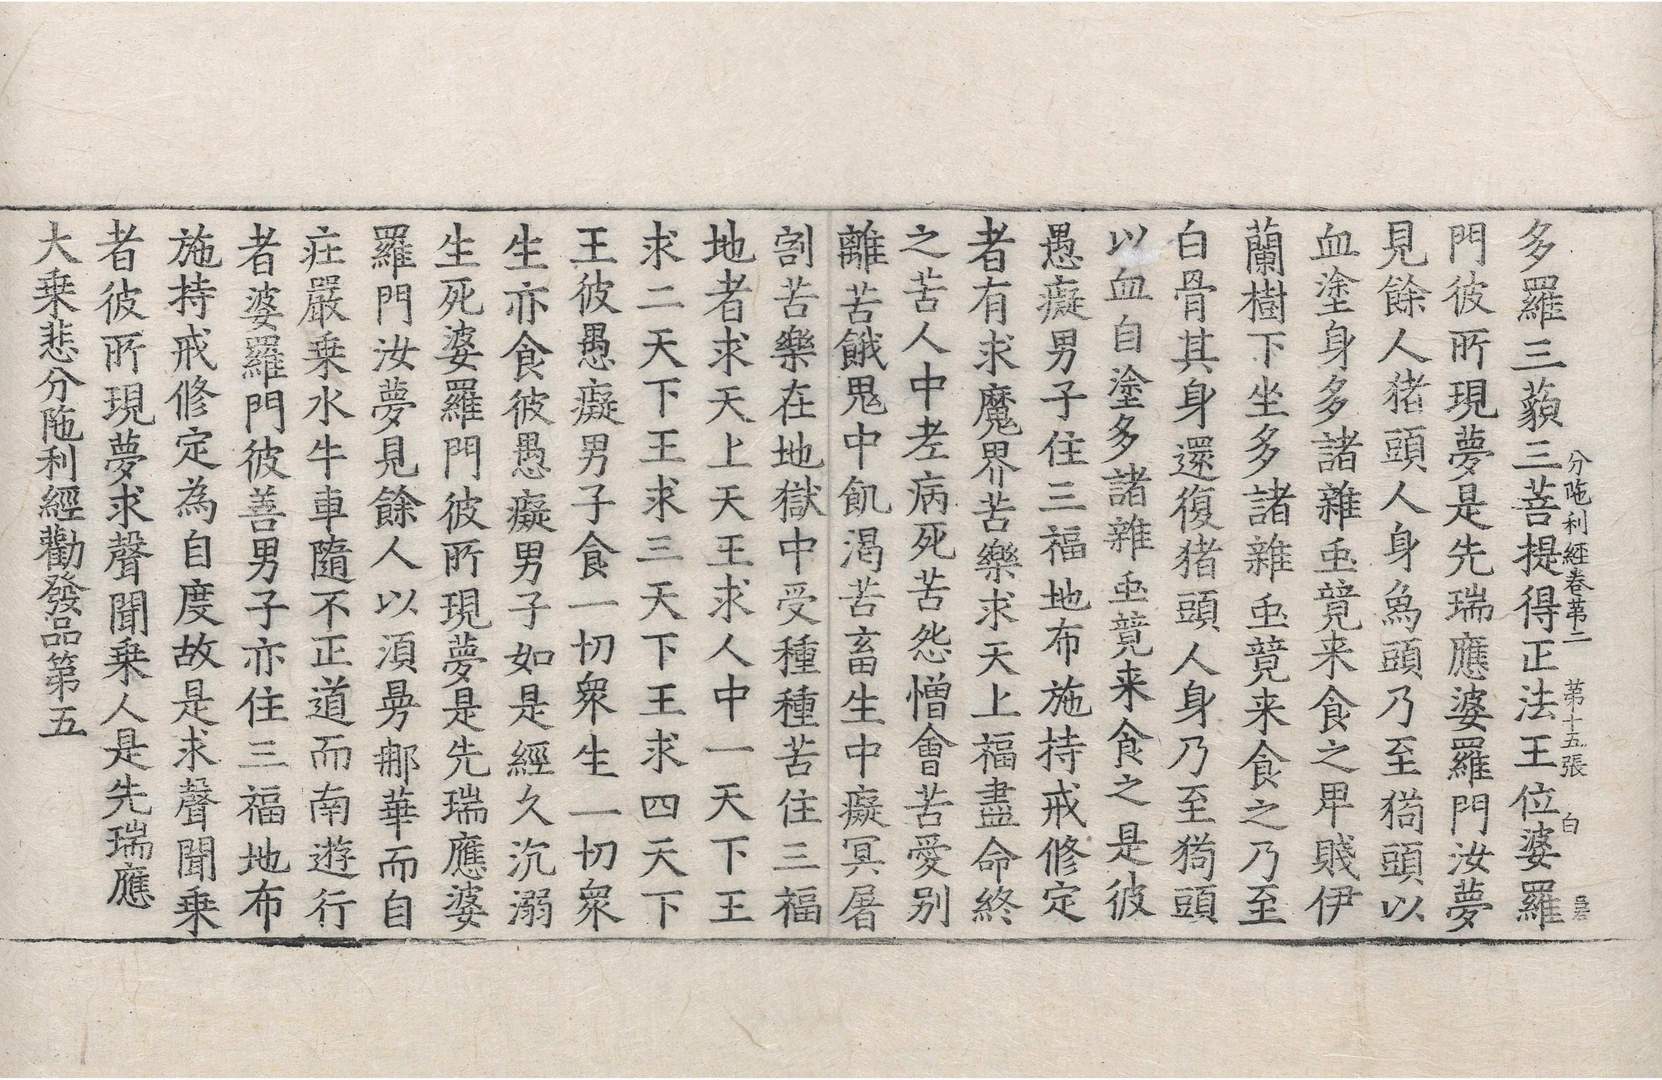 分陁利經卷苐二 苐十五張 白
多羅三藐三菩提得正法王位婆羅
門彼所現夢是先瑞應婆羅門汝夢
見餘人猪頭人身為頭乃至猗頭以
血塗身多諸雜䖝競来食之卑賤伊
蘭樹下坐多諸雜䖝競来食之乃至
白骨其身還復猪頭人身乃至猗頭
以血自塗多諸雜䖝競来食之是彼
愚癡男子住三福地布施持戒修定
者有求魔界苦樂求天上福盡命終
之苦人中老病死苦怨憎會苦愛別
離苦餓鬼中飢渴苦畜生中癡冥屠
割苦樂在地獄中受種種苦住三福
地者求天上天王求人中一天下王
求二天下王求三天下王求四天下
王彼愚癡男子食一切衆生一切衆
生亦食彼愚癡男子如是經久沉溺
生死婆羅門彼所現夢是先瑞應婆
羅門汝夢見餘人以湏曼那華而自
莊嚴乗水牛車隨不正道而南遊行
者婆羅門彼善男子亦住三福地布
施持戒修定為自度故是求聲聞乗
者彼所現夢求聲聞乗人是先瑞應
大乗悲分陁利經勸發品第五